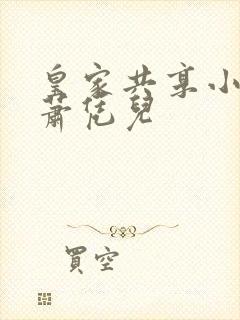 皇家共享小
蕭恁兒
買空